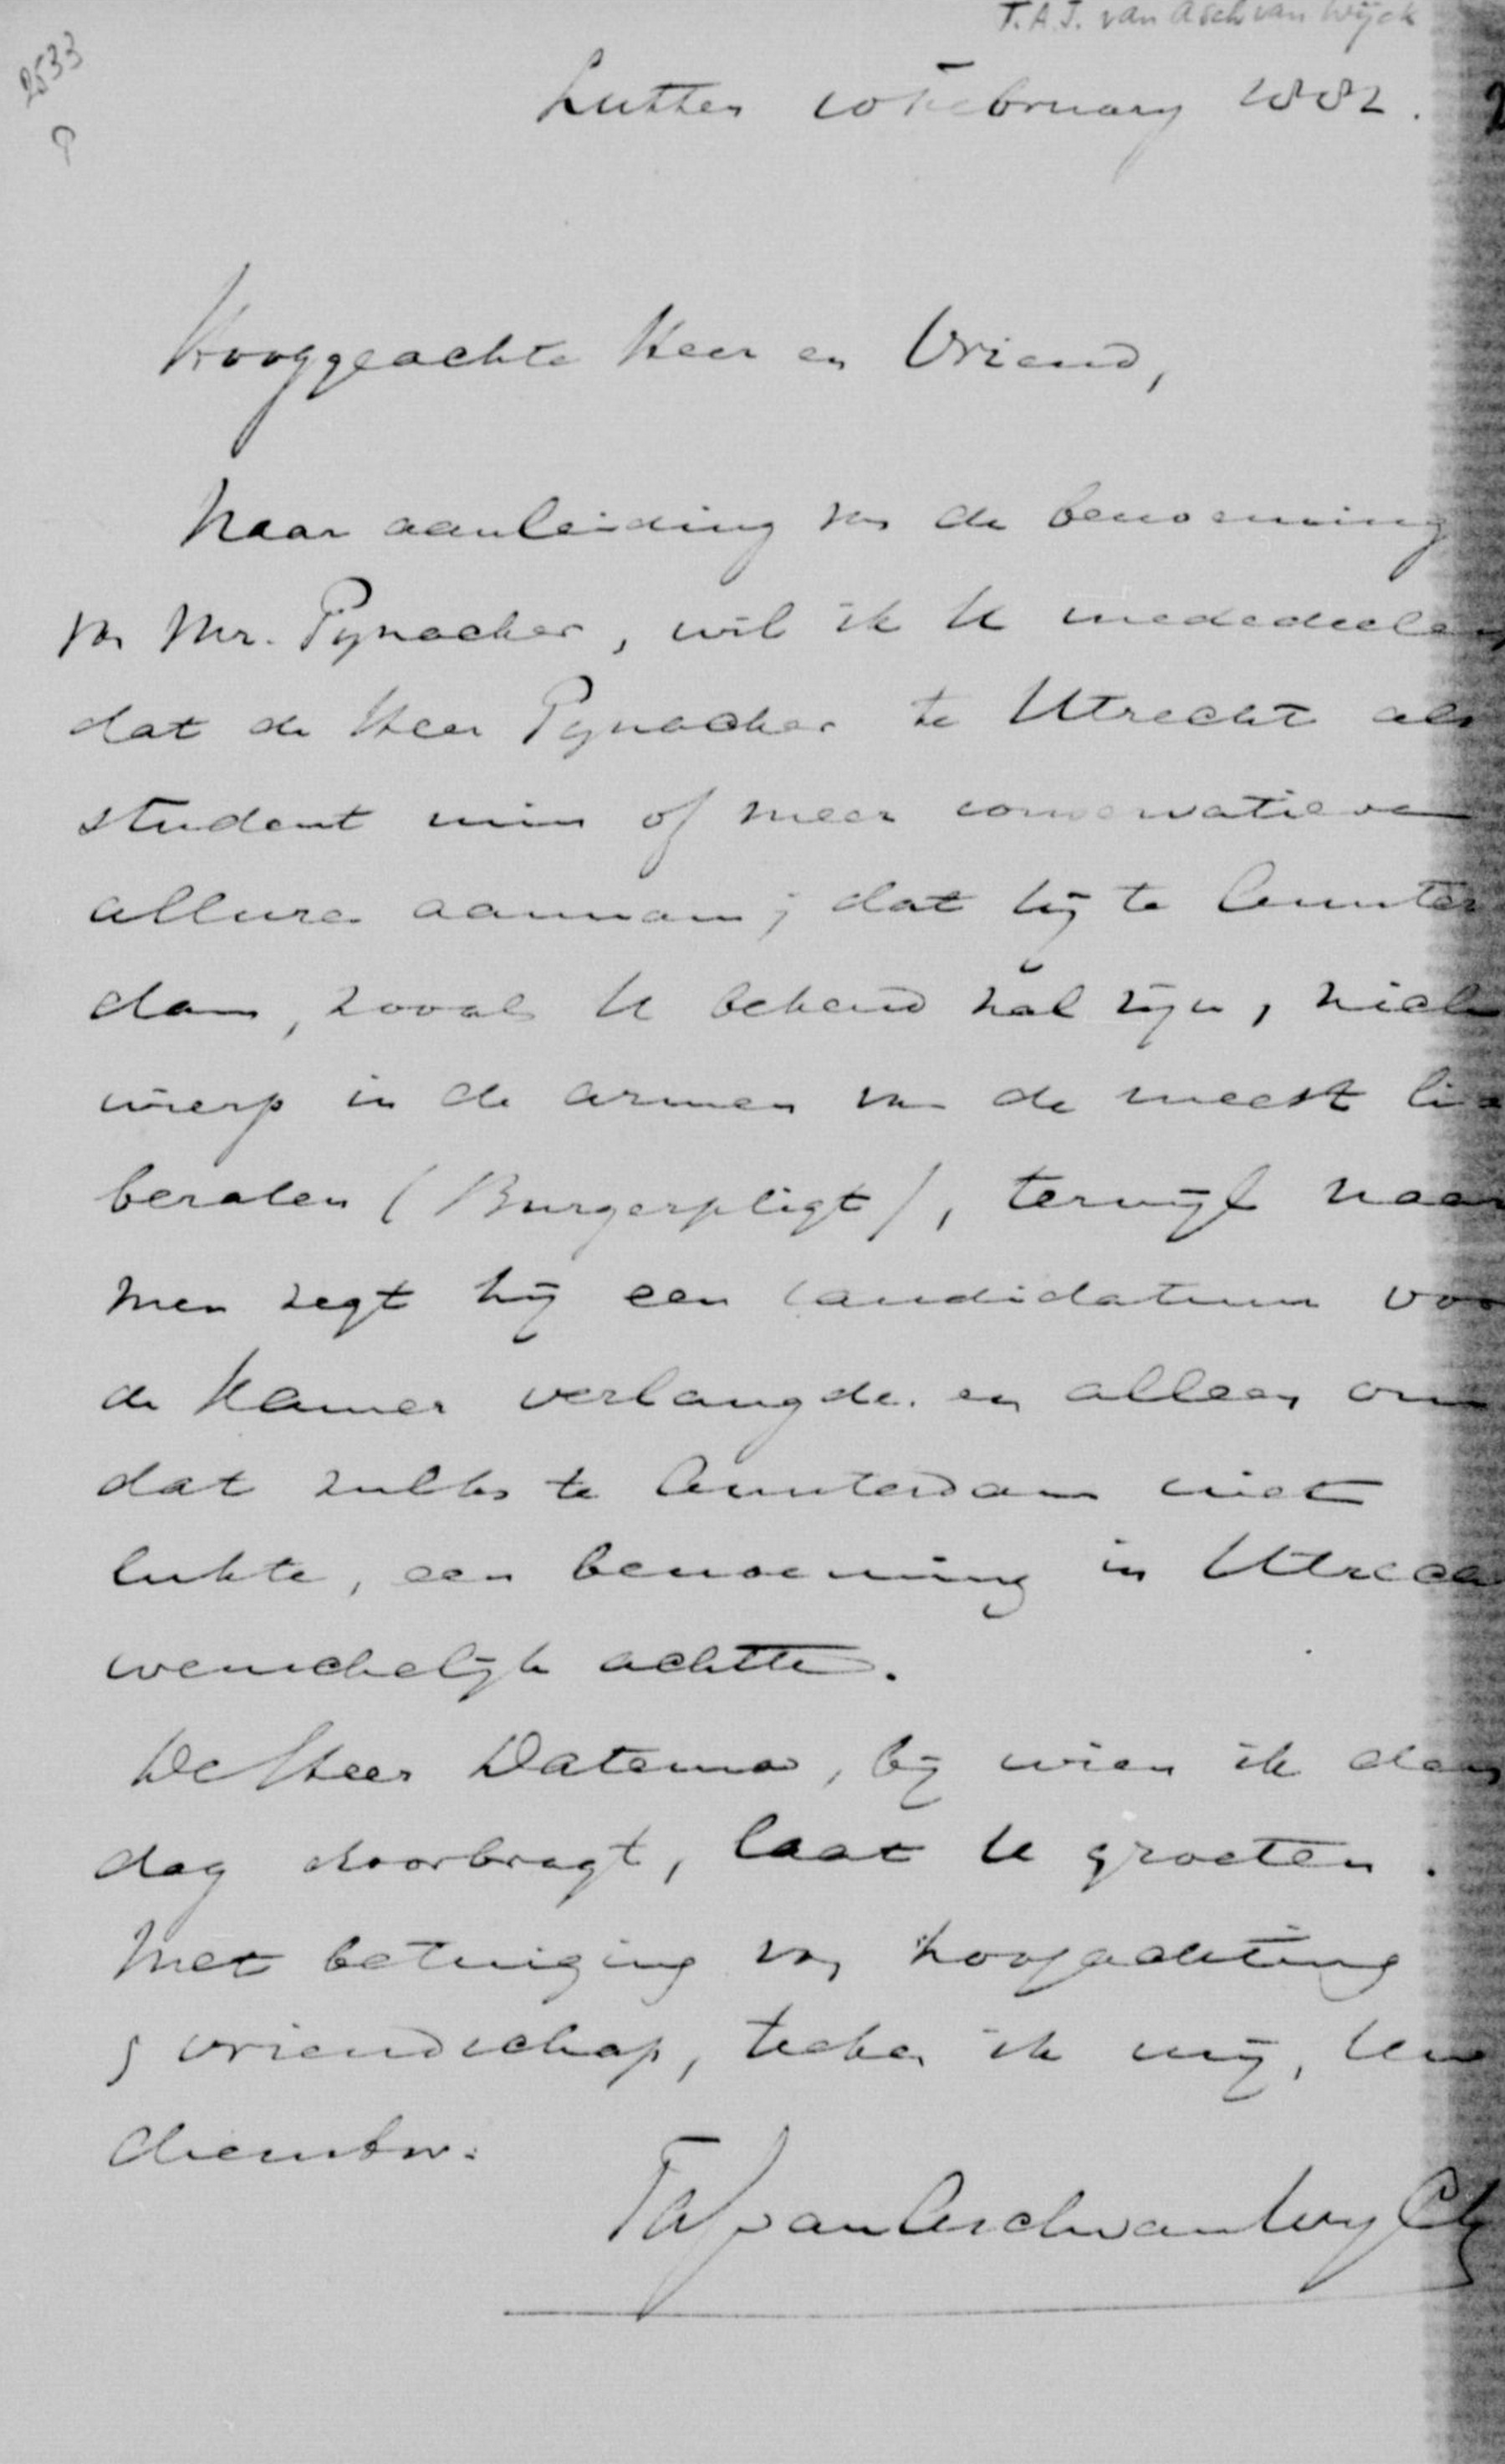 T.A.J. van Asch van Wijck
2533
Lutten 10 February 1882.
Hooggeachte Heer en Vriend,
Naar aanleiding van de benoeming
van Mr. Pynacker, wil ik U mededeelen
dat de Heer Pynacker te Utrecht als
student min of meer conservatieve
allures aannam; dat hij te Amster
dam, zooals U bekend zal zijn, zich
wierp in de armen van de meest li-
beralen (Burgerpligt), terwijl naar
men zegt hij een candidatuur voor
de Kamer verlangde. en alleen om
dat zulks te Amsterdam niet
lukte, een benoeming in Utrecht
wenschelijk achtte.
De Heer Datema, bij wien ik den
dag doorbragt, laat U groeten.
Met betuiging van hoogachting
& vriendschap, teeken ik mij, Uw
dienstw:
TAJ van Asch van Wyck